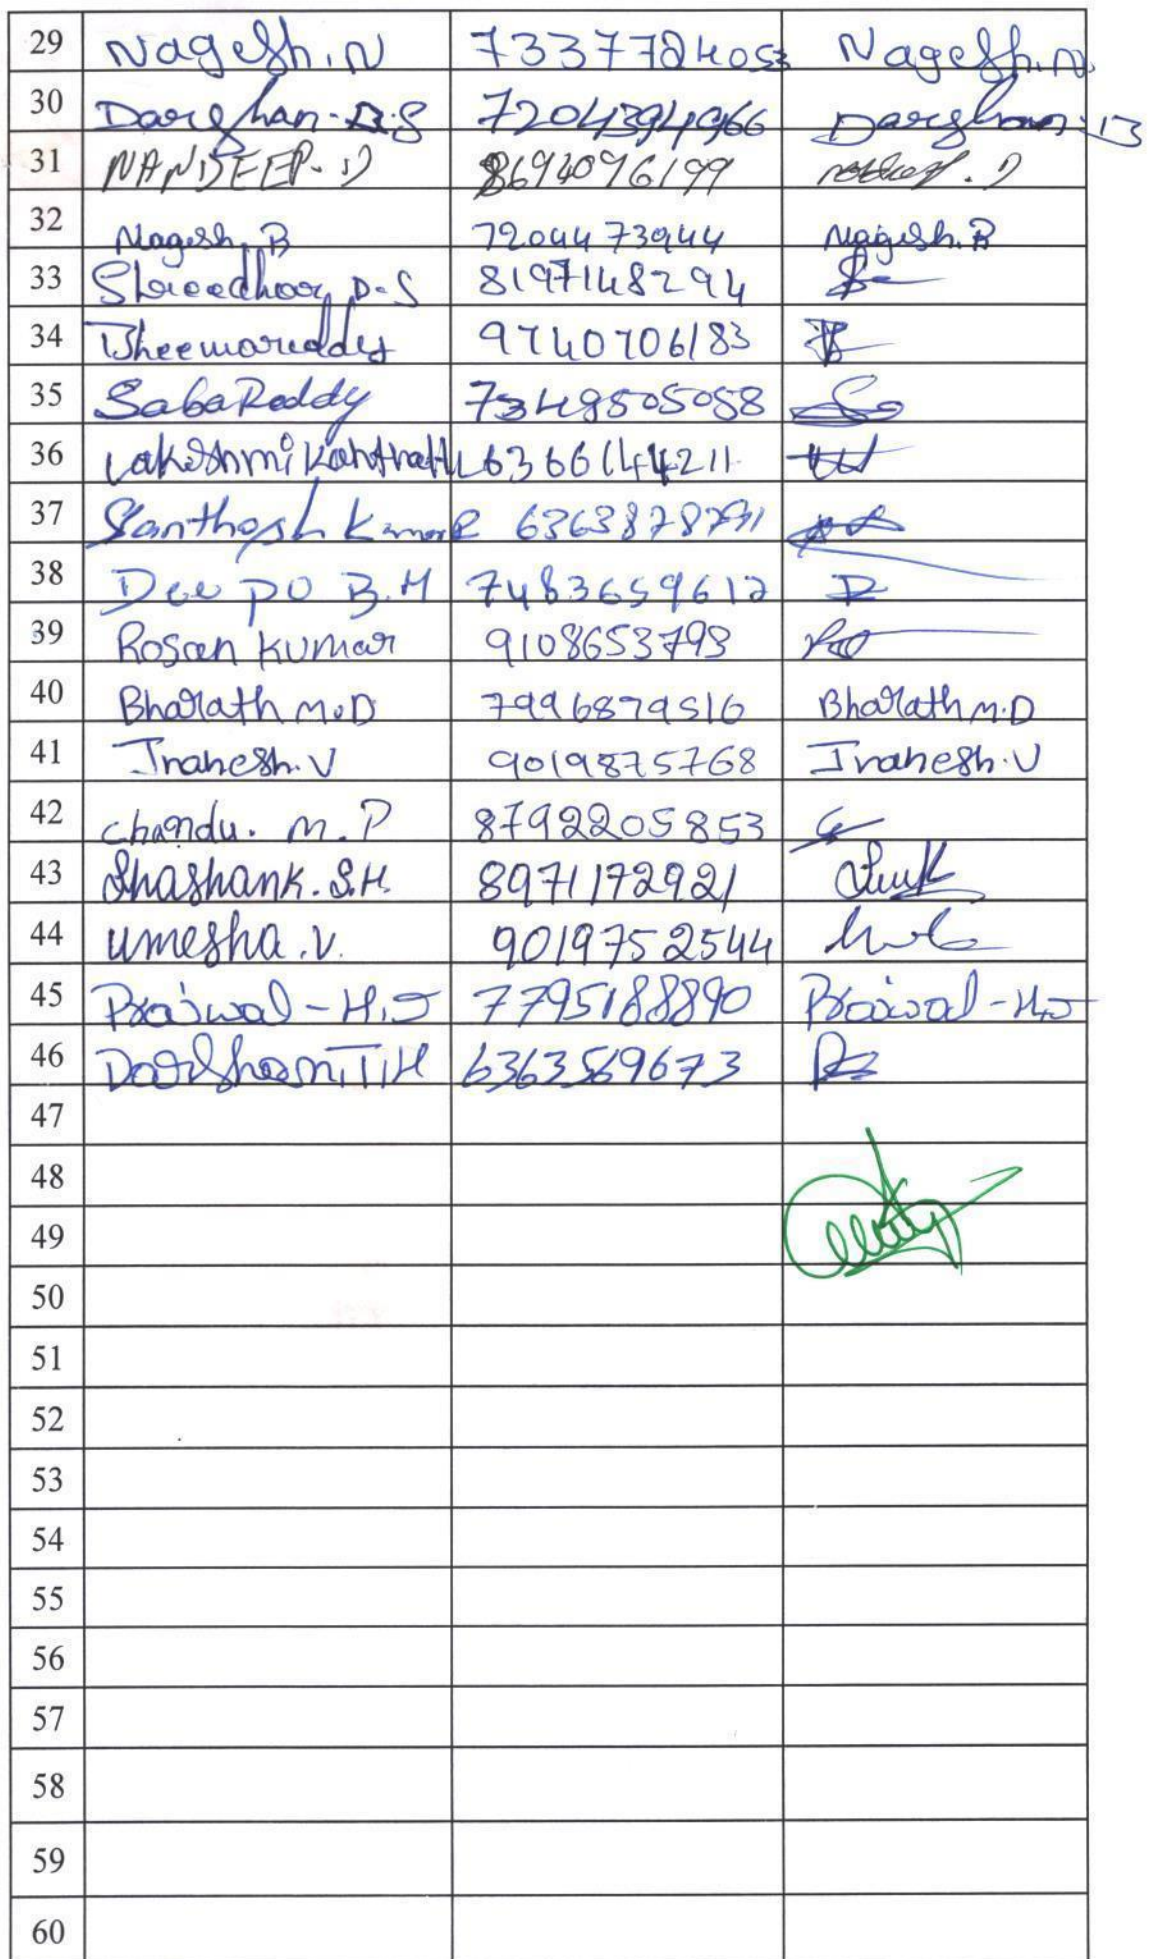 29 Nagesh.N 7337724053 Nagesh.N
30 Darshan.B.S 7204394966 Darshan.B
31 NANDEEP.D 8694096199
32 Nagesh.B 7204473944 Nagesh.B
33 Shreedhar D.S 8197148294
34 Bheemareddy 9740706183
35 SabaReddy 7349505058
36 6366144211
37 Santhosh Kumar
38 B.M 7483659612 D
39 Rosan Kumar 9108653793
40 Bharath M.D 7996879516 Bharath M.D
41 Jnanesh.V 9019875768 Jnanesh.V
42 chandu. M.P 8792205853
43 Shashank.S.H. 8971172921
44 umesha.v. 9019752544
45 Prajwal-H.J 7795188890 Prajwal-H.J
46 Darshan.T.H 6363569673
47
48
49
50
51
52
53
54
55
56
57
58
59
60